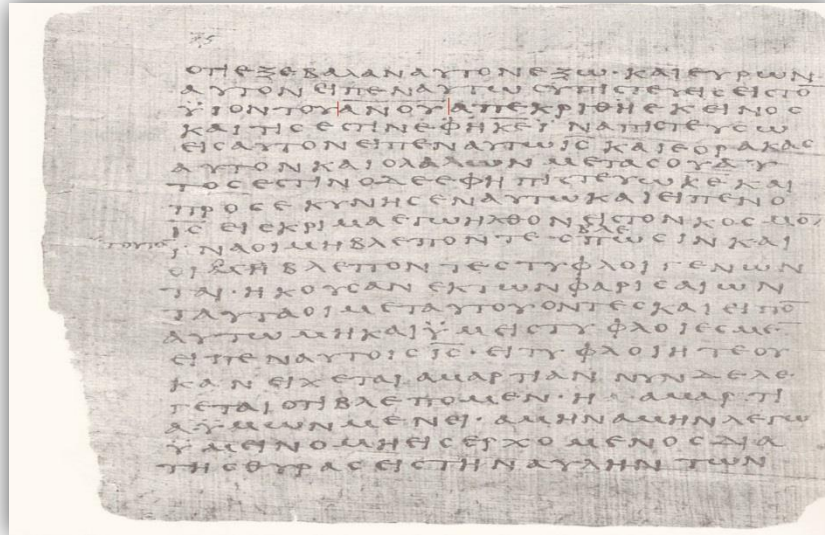 ΟΤΙΕΞΕΒΑΛΑΝΑΥΤΟΝΕΞΩ·ΚΑΙΕΥΡΩΝ
ΑΥΤΟΝΕΙΠΕΝΑΥΤΩϹΥΠΙϹΤΕΥΕΙϹΕΙϹΤΟ̅
ΫΙΟΝΤΟΥΑ̅Ν̅Ο̅Υ̅·ΑΠΕΚΡΙΘΗΕΚΕΙΝΟϹ
ΚΑΙΤΙϹΕϹΤΙΝΕΦΗΚ̅Ε̅ΪΝΑΠΙϹΤΕΥϹΩ
ΕΙϹΑΥΤΟΝΕΙΠΕΝΑΥΤΩΙ̅Ϲ̅ΚΑΙΕΟΡΑΚΑϹ
ΑΥΤΟΝΚΑΙΟΛΑΛΩΝΜΕΤΑϹΟΥΑΥ
ΤΟϹΕϹΤΙΝΟΔΕΕΦΗΠΙϹΤΕΥΩΚ̅Ε̅ΚΑΙ
ΠΡΟϹΕΚΥΝΗϹΕΝΑΥΤΩΚΑΙΕΙΠΕΝΟ
Ι̅Ϲ̅ΕΙϹΚΡΙΜΑΕΓΩΗΛΘΟΝΕΙϹΤΟΝΚΟϹΜΟ̅
ΒΛΕ
ΪΝΑΟΙΜΗΒΛΕΠΟΝΤΕϹΠΩϹΙΝΚΑΙ
ΟΙΜΗΒΛΕΠΟΝΤΕϹΤΥΦΛΟΙΓΕΝΩΝ
ΤΑΙ·ΗΚΟΥϹΑΝΕΚΤΩΝΦΑΡΙϹΑΙΩΝ
ΤΑΥΤΑΟΙΜΕΤΑΥΤΟΥΟΝΤΕϹΚΑΙΕΙΠΟ̅
ΑΥΤΩΜΗΚΑΙΫΜΕΙϹΤΥΦΛΟΙΕϹΜΕ
ΕΙΠΕΝΑΥΤΟΙϹΙ̅Ϲ̅·ΕΙΤΥΦΛΟΙΗΤΕΟΥ
ΚΑΝΕΙΧΕΤΑΙΑΜΑΡΤΙΑΝΝΥΝΔΕΛΕ
ΓΕΤΑΙΟΤΙΒΛΕΠΟΜΕΝ·ΗΑΜΑΡΤΙ
ΑΫΜΩΝΜΕΝΕΙ·ΑΜΗΝΑΜΗΝΛΕΓΩ
ΫΜΕΙΝΟΜΗΕΙϹΕΡΧΟΜΕΝΟϹΔΙΑ
ΤΗϹΘΥΡΑϹΕΙϹΤΗΝΑΥΛΗΝΤΩΝ